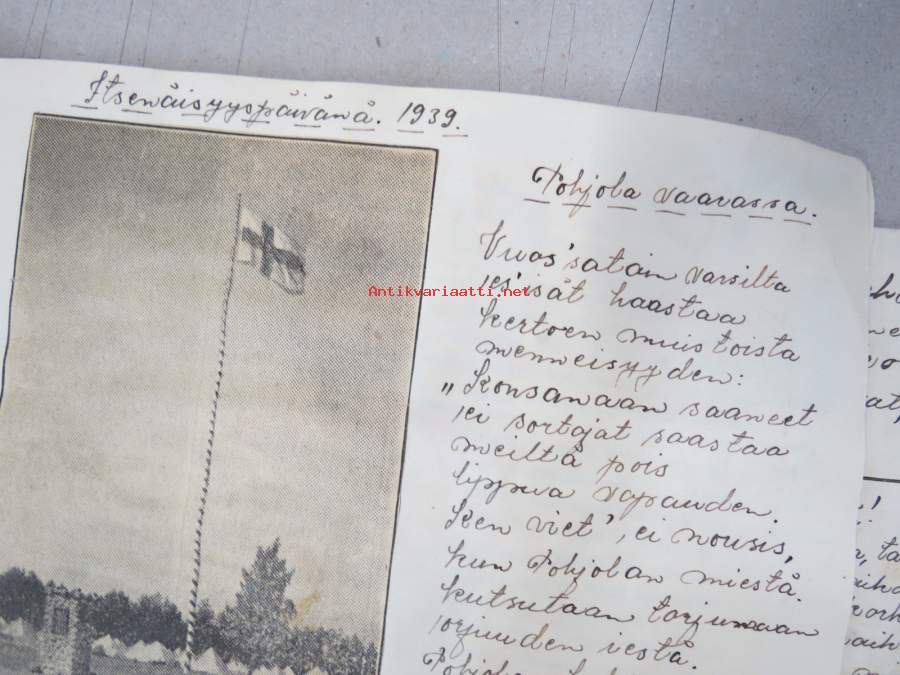 Itsenäisyyspäivänä. 1939.
Pohjola vaarassa.
Vuos'satain varsilta
es'isät haastaa
kertoen muistoista
menneisyyden:
„Konsanaan saaneet
ei sortajat saastaa
meiltä pois
lippua vapauden.
Ken viet', ei nousis,
kun Pohjolan miestä.
kutsutaan torjumaan
orjuuden iestä.
Antikvariaatti.net